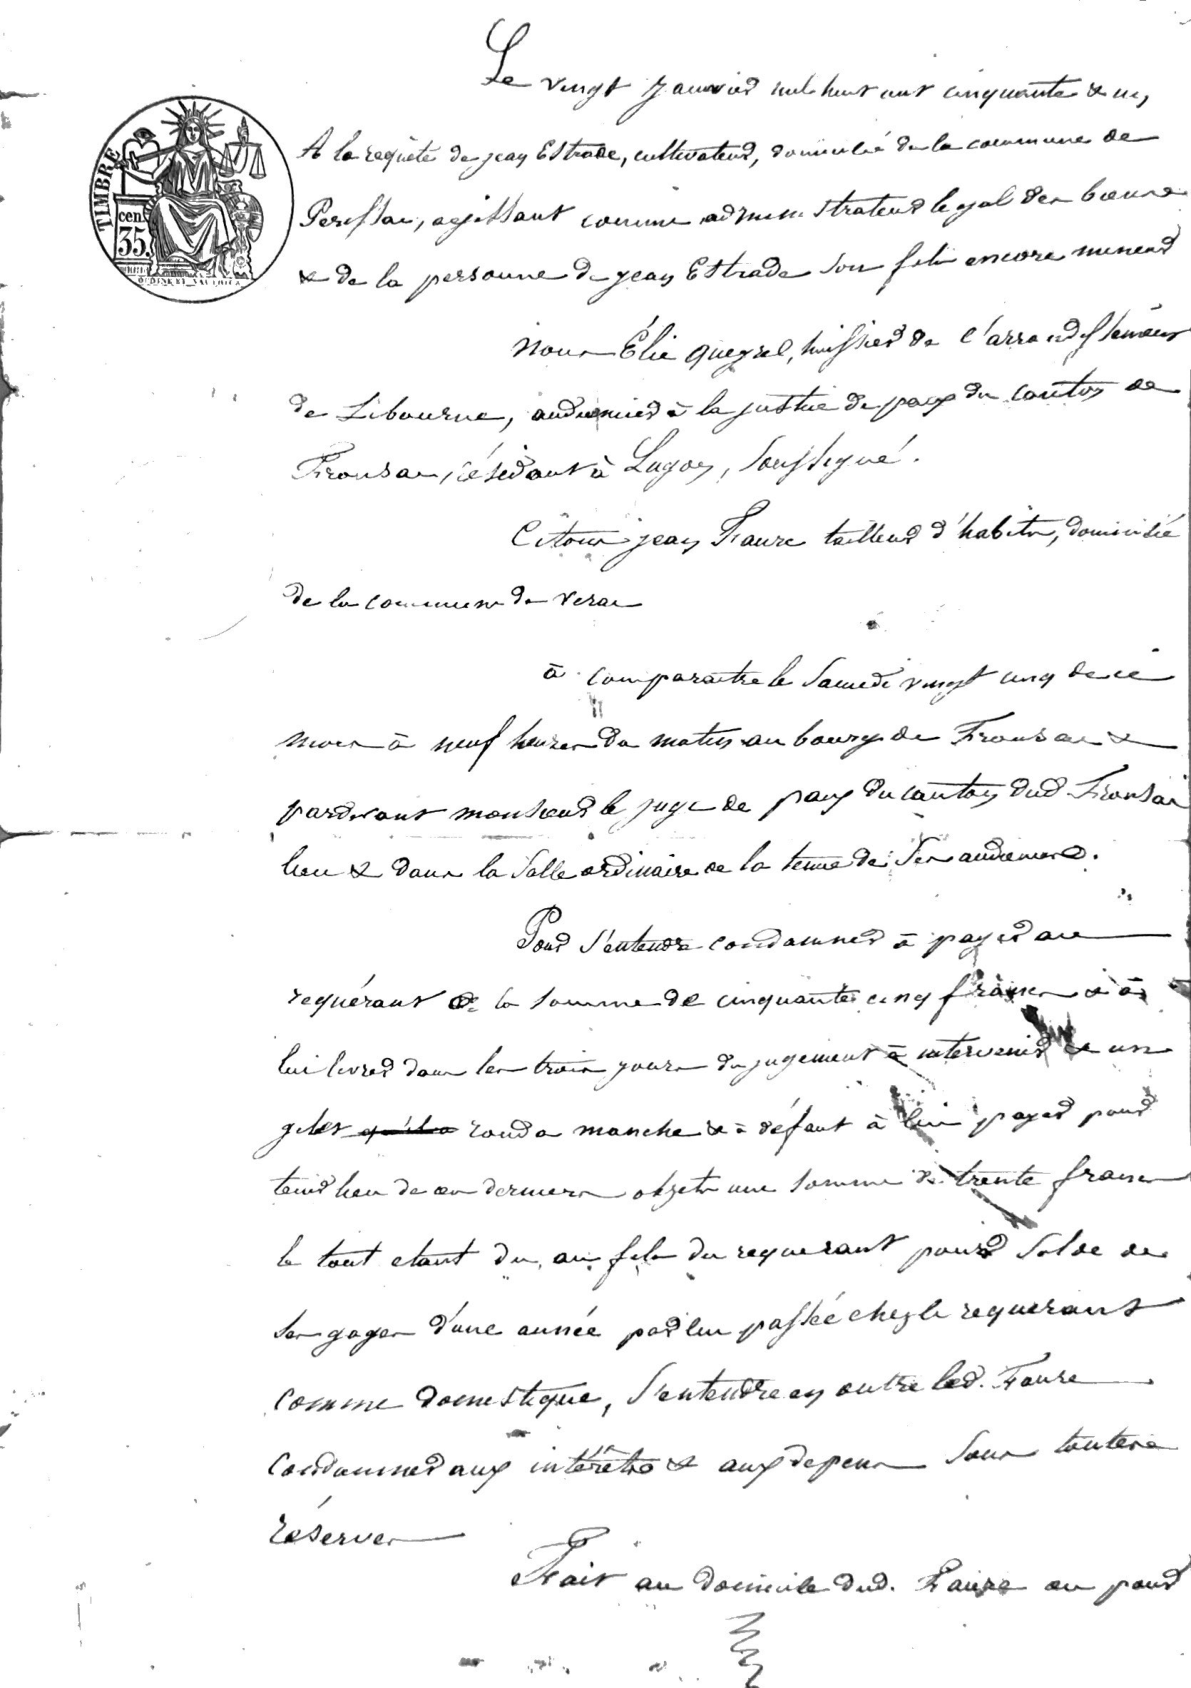 Le vingt janvier mil huit cent cinquante & un,
TIMBRE
cen.
35.
A la requête de jean Estrade, cultivateur, domicilié de la commune de
Perissac, agissant comme administrateur legal des biens
& de la personne de jean Estrade son fils encore mineur
Nous Élie Queyrel, huissier de l'arrondissement
de Libourne, audiencier à la justice de paix du canton de
Fronsac, résidant à Lugon, soussigné.
Citons jean Faure tailleur d'habits, domicilié
de la commune de Verac
à comparaitre le Samedi vingt cinq de ce
mois à neuf heures du matin au bourg de Fronsac &
pardevant monsieur le juge de paix du canton dud. Fronsac
lieu & dans la Salle ordinaire de la tenue de Ses audiences.
Pour S'entendre condamner à payer au
requérant la somme de cinquante cinq francs & à
lui livrer dans les trois jours du jugement à intervenir & un
gilet ronde manche & à défaut à lui payer pour
tenir lieu de ces derniers objets une somme de trente francs
le tout etant du au fils du requerant pour Solde de
Ses gages d'une année par lui passée chez le requerant
comme domestique, S'entendre en outre led. Faure
condamner aux intérêts & aux depens Sous toutes
réserves
Fait au domicile dud. Faure ou pour